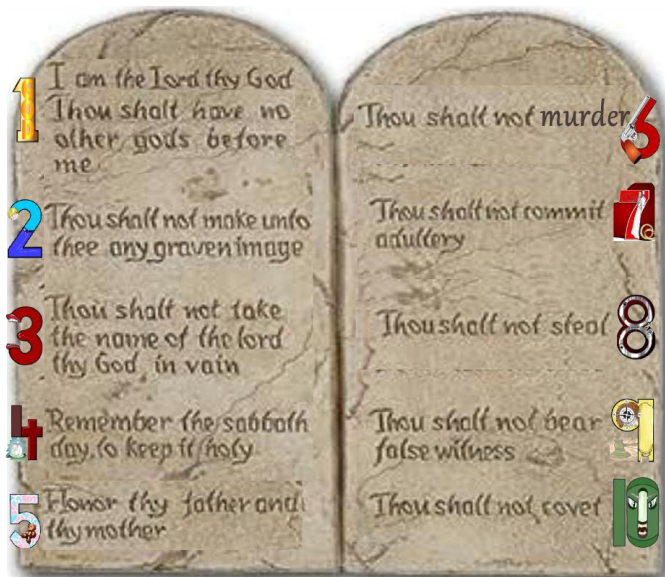 1
I am the Lord thy God
Thou shalt have no
other gods before
me
2
Thou shalt not make unto
thee any graven image
3
Thou shalt not take
the name of the lord
thy God in vain
4
Remember the sabbath
day, to keep it holy
5
Honor thy father and
thy mother
Thou shall not murder
6
Thou shall not commit
adultery
7
Thou shalt not steal
8
Thou shall not bear
false witness
9
Thou shall not covet
10